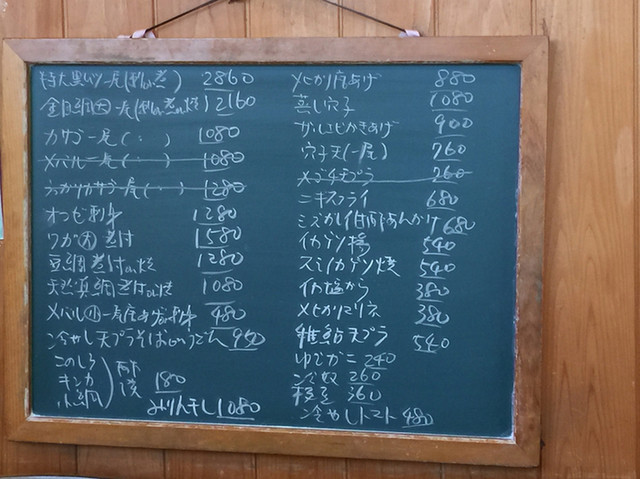 特大黒ムツ一尾(刺or煮) 2860
金目鯛大一尾(刺or煮or焼) 12160
カサゴ一尾( 〃 ) 1080
メバル二尾( 〃 ) 1080
カサゴ一尾( 〃 ) 1280
オコゼ刺身 1280
ワガ大煮付 1580
豆鯛煮付or焼 1280
天然真鯛煮付or焼 1080
メバル小一尾唐あげor刺身 480
冷やし天プラそばorうどん 950
このしろ
キンカ
小鯛
酢漬 180
みりん干し 1080
メヒカリ唐あげ 880
蒸し穴子 1080
かきあげ 900
穴子天(一尾) 760
メゴチ天プラ 260
ニギスフライ 680
ミズカレイ甘酢あんかけ 680
イカゲソ揚 540
スミイカゲソ焼 540
イカ塩から 380
メヒカリマリネ 380
稚鮎天プラ 540
ゆでガニ 240
冷奴 260
枝豆 360
冷やしトマト 480